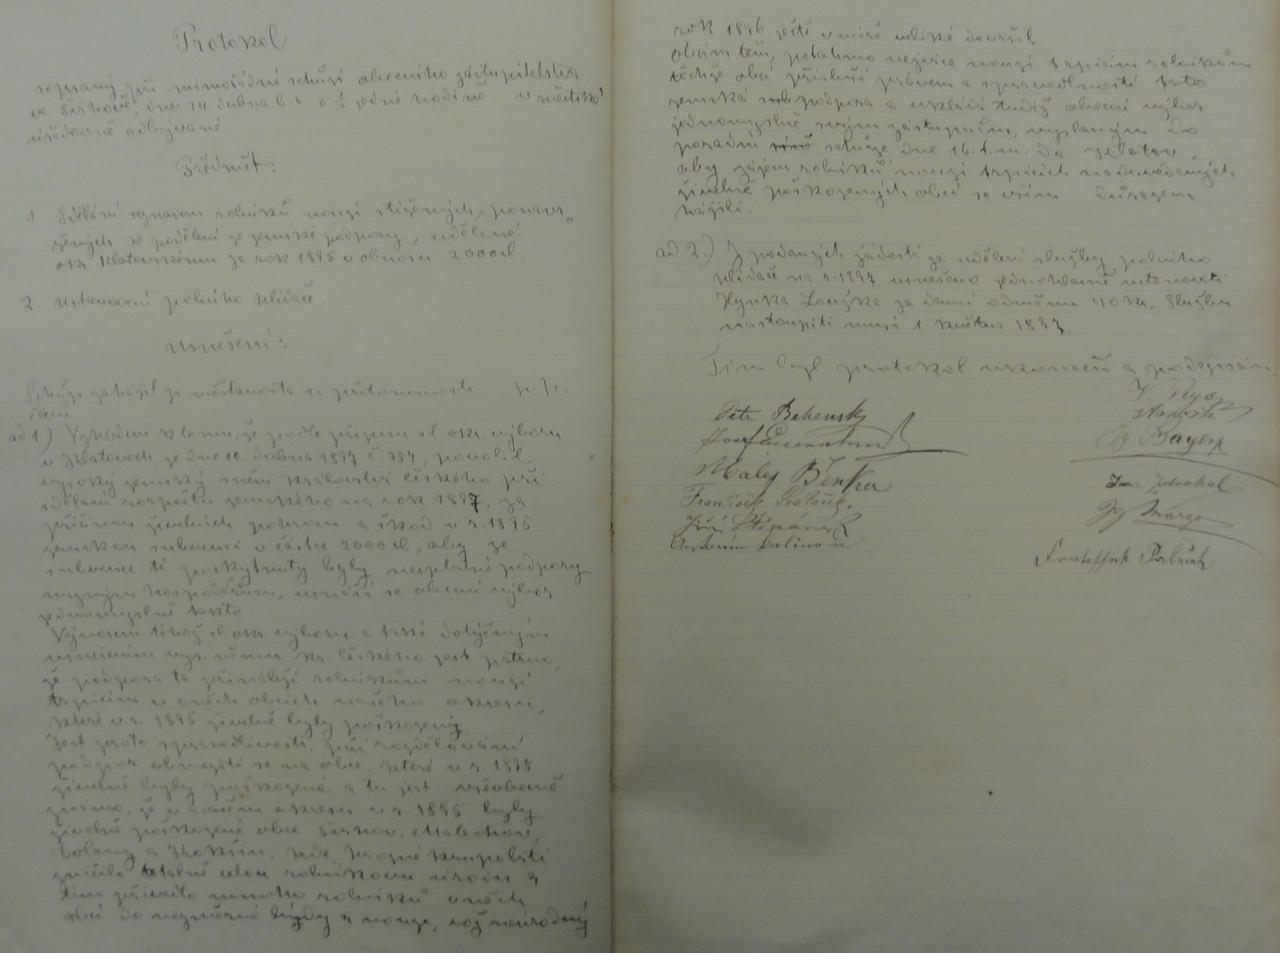 Protokol
sepsaný při mimořádné schůzi obecního zastupitelstva
ve Švihově, dne 14. dubna t. r. o ½ jedné hodině v městské
úřadovně odbývané
Předmět:
1 Sdělání seznamu rolníků nouzí stižených, porav-
žených k podělení ze zemské podpory, udělené
okr. klatovskému za rok 1895 v obnosu 2000 zl.
2 ustanovení polního hlídače.
Usnešení:
Schůzi zahájil p. měšťanosta u přítomnosti p. p.
členů.
ad 1) Vzhledem k tomu, že podle přípisu sl. okr. výboru
v Klatovech, ze dne 10. dubna 1897 č 784, povolil
vysoký zemský sněm království českého při
sdělání rozpočtu zemského na rok 1897, za
příčinou živelních pohrom a škod v r. 1895
zemskou subvenci v částce 2000 zl, aby ze
subvence té poskytnuty byly nesplatné podpory
nuzným hospodářům, usnáší se obecní výbor
jednomyslně takto:
Výnosem téhož sl. okr. výboru a také dotyčným
usnešením vys. sněmu kr. českého jest patrno,
že podpora ta přináleží rolníkům nouzí
trpícím v oněch obcích našeho okresu,
které v r. 1895 živelně byly poškozeny.
Jest proto spravedlivostí, při rozdělování
podpor obmeziti se na obce, které v r. 1895
živelně byly poškozené a tu jest všeobecně
známo, že v našem okresu v r. 1895 byly
živelně poškozené obce Švihov, Malechov,
Dolany a Krokšín, kde hrozné krupobití
zničilo totálně celou rolníkovu úrodu a
tím přivedlo mnoho rolníků v oněch
obcí do nezměrné bídy a nouze, což neúrodný
rok 1896 ještě v míře veliké dovršil
Obcím těm, potažmo nejvíce nouzí trpícím rolníkům
těchže obcí přísluší právem a spravedlností tato
zemská podpora a ukládá tudíž obecní výbor
jednomyslně svým zástupcům, vyslaným do
poradní schůze dne 16. t. m. do Klatov,
aby zájem rolníků nouzí trpících nadeuvedených
živelně poškozených obcí se vším důrazem
hájili.
ad 2.) Z podaných žádostí za udělení služby polního
hlídače na r. 1897 usnešeno jednohlasně ustanoviti
Hynka Loužka za denní odměnu 40 kr. Službu
nastoupiti musí 1. května 1897.
Tím byl protokol ukončen a podepsán.
V. Rys
starosta
Petr Behenský
Josef
J. Bayer
Malý Běnka
František Sedláček
Jan Zdrahal
Jiří Štěpánek
Jos. Marge
Antonín Kalina